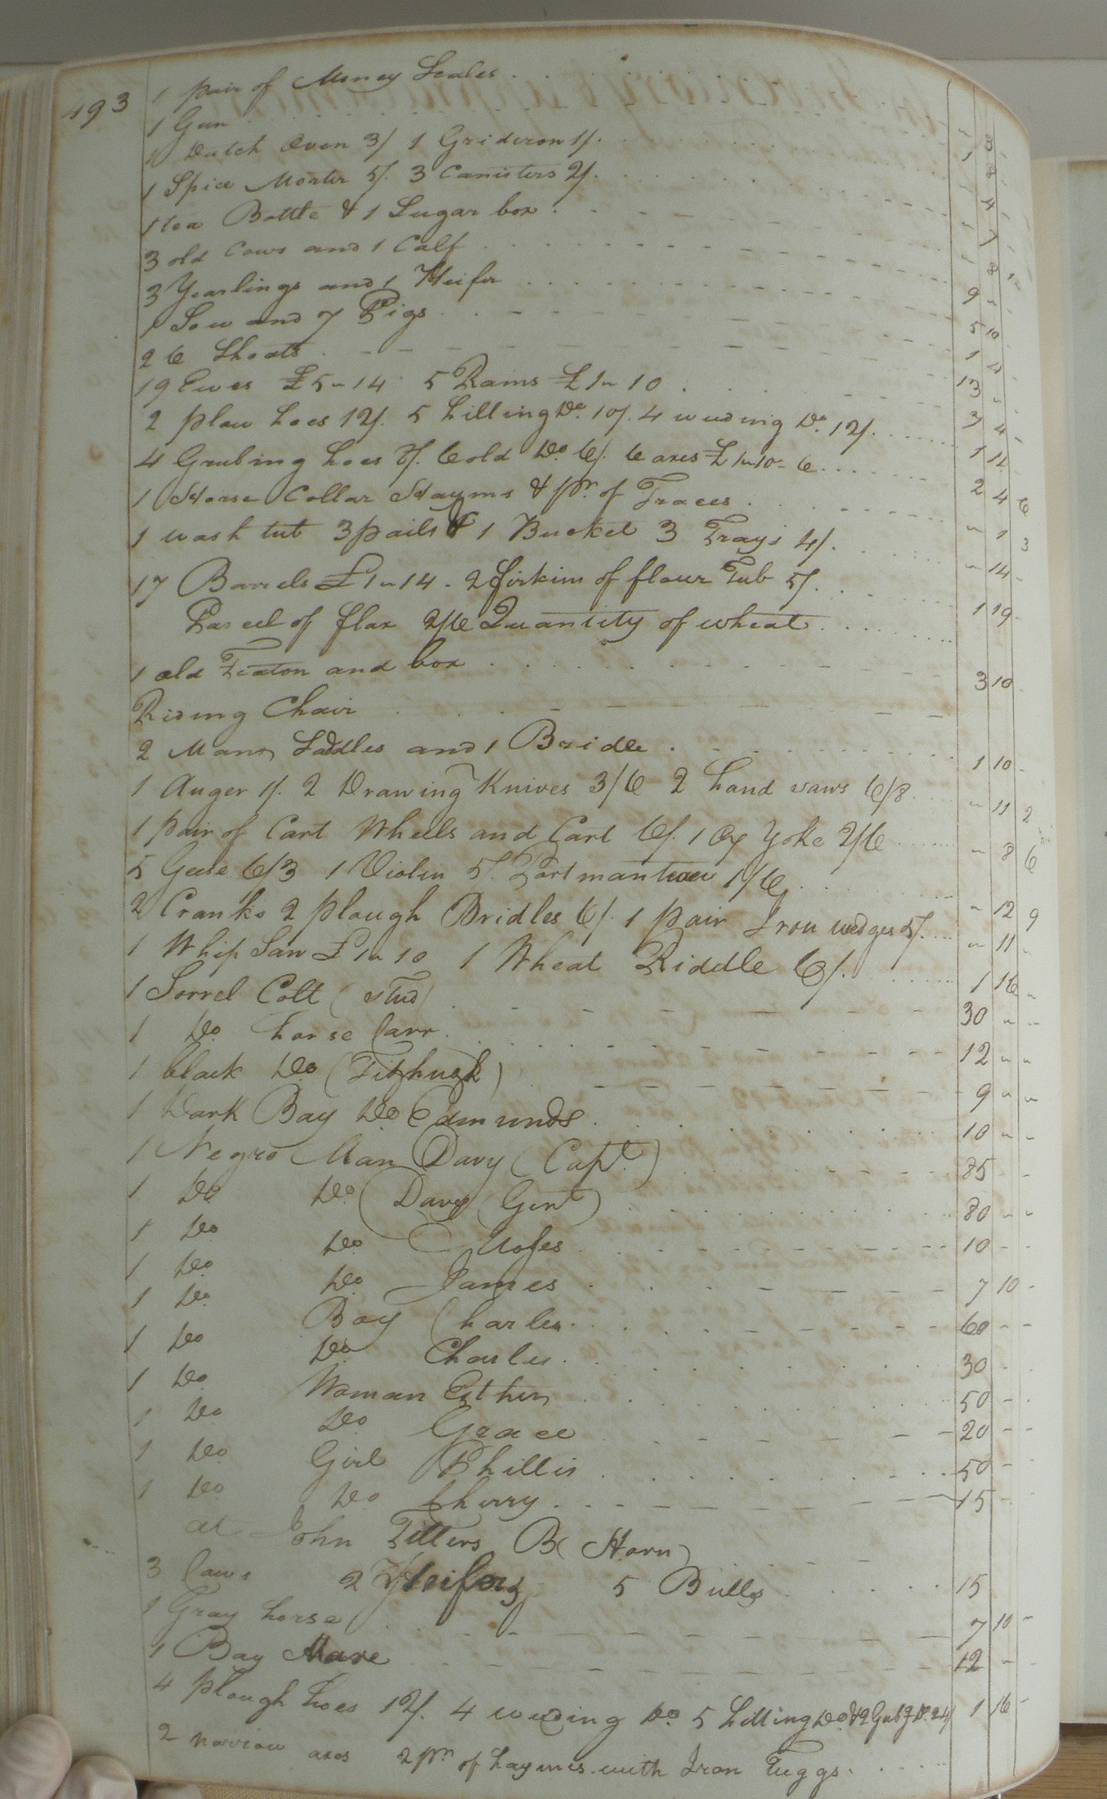 493
1 pair of Money Scales " 8 -
1 Gun 1 8
1 Dutch Oven 3/ 1 Gridiron 1/. 4
1 Spice Morter 5/. 3 Canisters 2/. 7
1 tea Bottle & 1 Sugar box 8
3 old Cows and 1 Calf 9 "
3 Yearlings and 1 Heifer 5 10
1 Sow and 7 Pigs 1 4
26 Shoats 13 "
19 Ewes £5 " 14 5 Rams £1 " 10 3 4 -
2 plow hoes 12/. 5 hilling Do. 10/. 4 weeding Do. 12/. 1 14
4 Grubing hoes 8/. 6 old Do 6/. 6 axes £1 " 10 - 6 2 4 6
1 Horse Collar Hayms & pr. of Traces " 1 3
1 wash tub 3 pails & 1 Bucket 3 Trays 4/. " 14 -
17 Barrels £1 " 14 - 2 firkins of flour Tub 5/. 1 19
Parcel of flax 2/6 Quantity of wheat
1 old and box 3 10
Riding Chair
2 Mans Saddles and 1 Bridle 1 10 -
1 Auger 1/. 2 Drawing Knives 3/6 2 hand saws 6/8 " 11 2
1 pair of Cart Wheels and Cart 6/. 1 Ox Yoke 2/6 - 8 6
5 Geese 6/3 1 Violin 5/. Portmanteau 1/6 " 12 9
2 Cranks 2 plough Bridles 6/. 1 pair Iron wedges 5/. " 11 -
1 Whip Saw £1 " 10 1 Wheat Riddle 6/. 1 16 "
1 Sorrel Colt (stud) 30 " -
1 Do horse Carr 12 " "
1 black Do (Fitzhugh) 9 " "
1 Dark Bay Do Edmunds 10 - -
1 Negro Man Davy (Capt.) 85 - -
1 Do Do (Davy Gent) 80 - -
1 Do Do Moses 10 - -
1 Do Do James 7 10 -
1 Do. Boy Charles 60 - -
1 Do Do. Charles 30 - -
1 Do Woman Esther 50 - -
1 Do Do Grace 20 - -
1 Do Girl Phillis 50 -
1 Do Do Cherry 15 -
at John B( Horn)
3 Cows 2 Heifers 5 Bulls 15
1 Gray horse 7 10 -
1 Bay Mare 12 - -
4 plough hoes 12/. 4 weeding Do 5 hilling Do & 2 Gubg Do. 24/ 1 16 -
2 narrow axes 2 pr. of haymes with Iron Tuggs